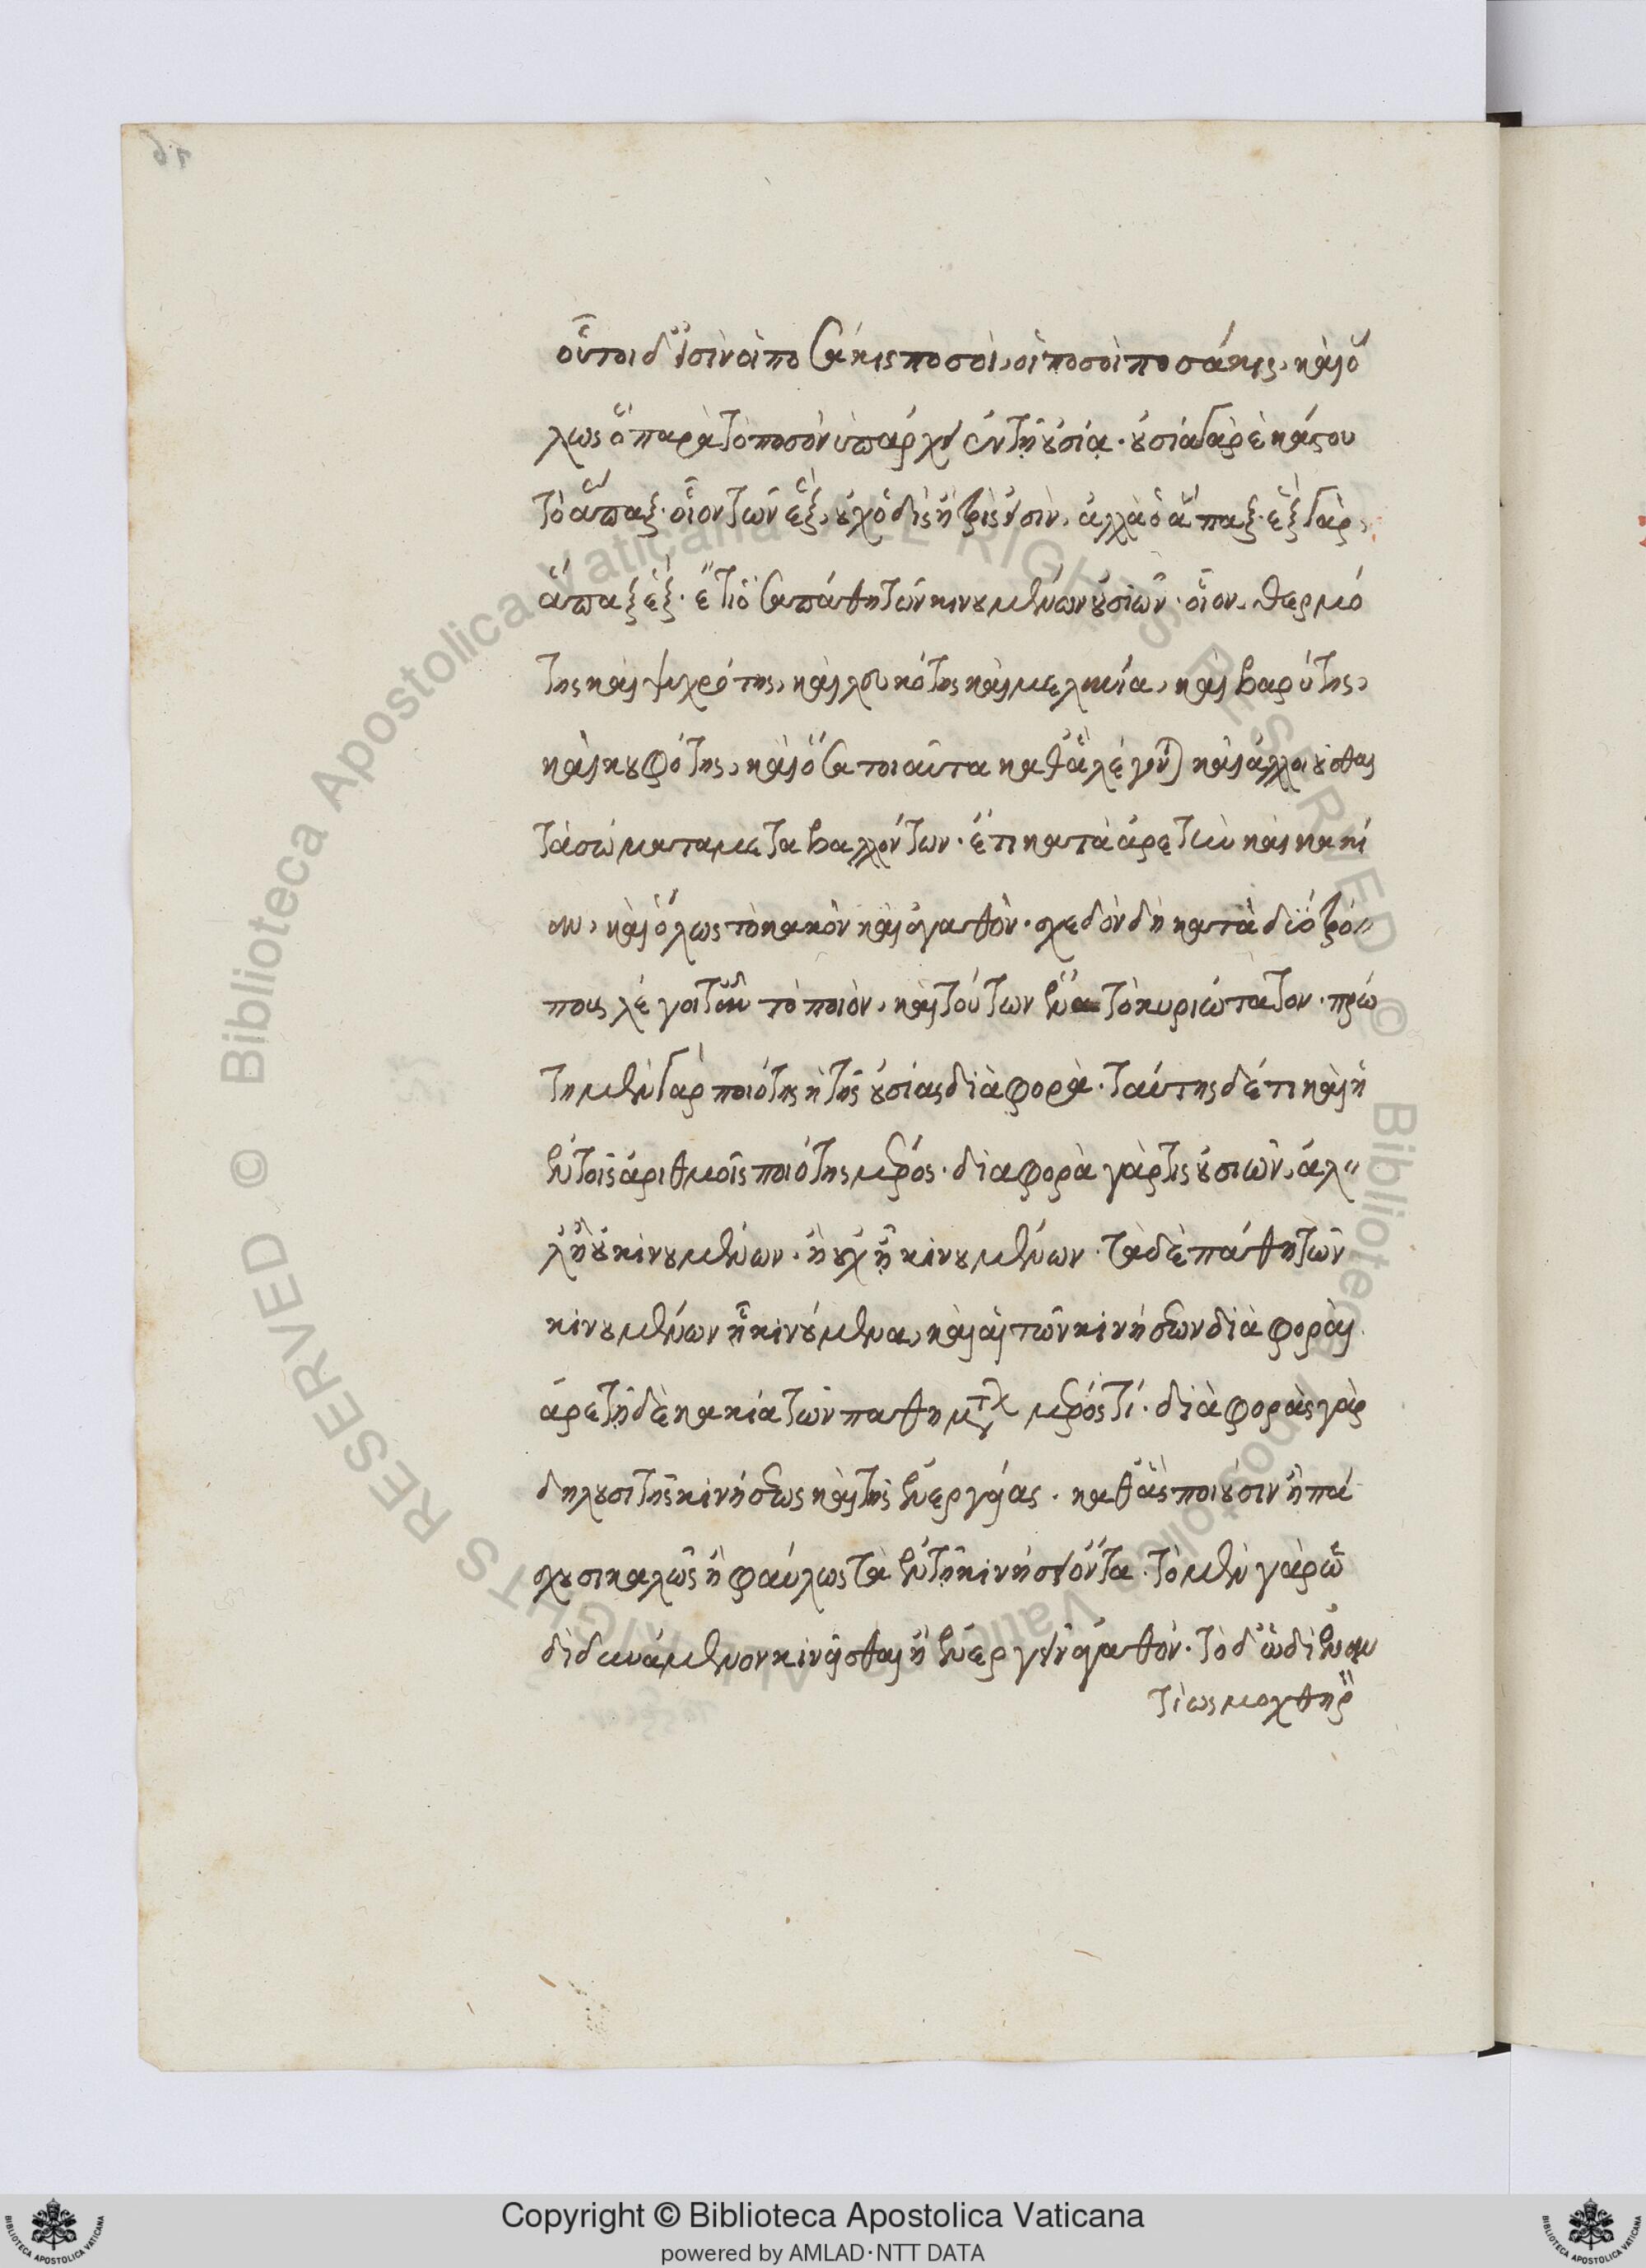 οὗτοι δ' εἰσὶν οἱ ποσάκις ποσοὶ, οἱ ποσοὶ ποσάκις, καὶ ὅ
λως ὃ παρὰ τὸ ποσὸν ὑπάρχει ἐν τῇ οὐσίᾳ· οὐσία γὰρ ἑκάστου
τὸ ἅπαξ· οἷον τῶν ἓξ, οὐχ ὃ δὶς ἢ τρὶς εἰσὶν, ἀλλὰ ὃ ἅπαξ· ἓξ γὰρ,
ἅπαξ ἓξ· ἔτι ὅσα πάθη τῶν κινουμένων οὐσιῶν· οἷον, θερμό
της καὶ ψυχρότης, καὶ λευκότης καὶ μελανία, καὶ βαρύτης,
καὶ κουφότης, καὶ ὅσα τοιαῦτα καθ' ἃ λέγονται καὶ ἀλλοιοῦσθαι
τὰ σώματα μεταβαλλόντων· ἔτι κατὰ ἀρετὴν καὶ κακί
αν, καὶ ὅλως τὸ κακὸν καὶ ἀγαθὸν· σχεδὸν δὴ κατὰ δύο τρό
πους λέγοιτ' ἂν τὸ ποιὸν, καὶ τούτων ἕνα τὸ κυριώτατον· πρώ
τη μὲν γὰρ ποιότης ἡ τῆς οὐσίας διαφορὰ· ταύτης δέ τι καὶ ἡ
ἐν τοῖς ἀριθμοῖς ποιότης μέρος· διαφορὰ γάρ τις οὐσιῶν, ἀλ
λ' ἢ οὐ κινουμένων· ἢ οὐχ ᾗ κινουμένων· τὰ δὲ πάθη τῶν
κινουμένων ᾗ κινούμενα, καὶ αἱ τῶν κινήσεων διαφοραὶ
ἀρετὴ δὲ κακία τῶν παθημάτων μέρος τί· διαφορὰς γὰρ
δηλοῦσι τῆς κινήσεως καὶ τῆς ἐνεργείας· καθ' ἃς ποιοῦσιν ἢ πά
σχουσι καλῶς ἢ φαύλως τὰ ἐν τῇ κινήσει ὄντα· τὸ μὲν γὰρ ὡ
δὶ δυνάμενον κινεῖσθαι ἢ ἐνεργεῖν ἀγαθόν· τὸ δ' ὡδὶ ἐναν
τίως μοχθηρ